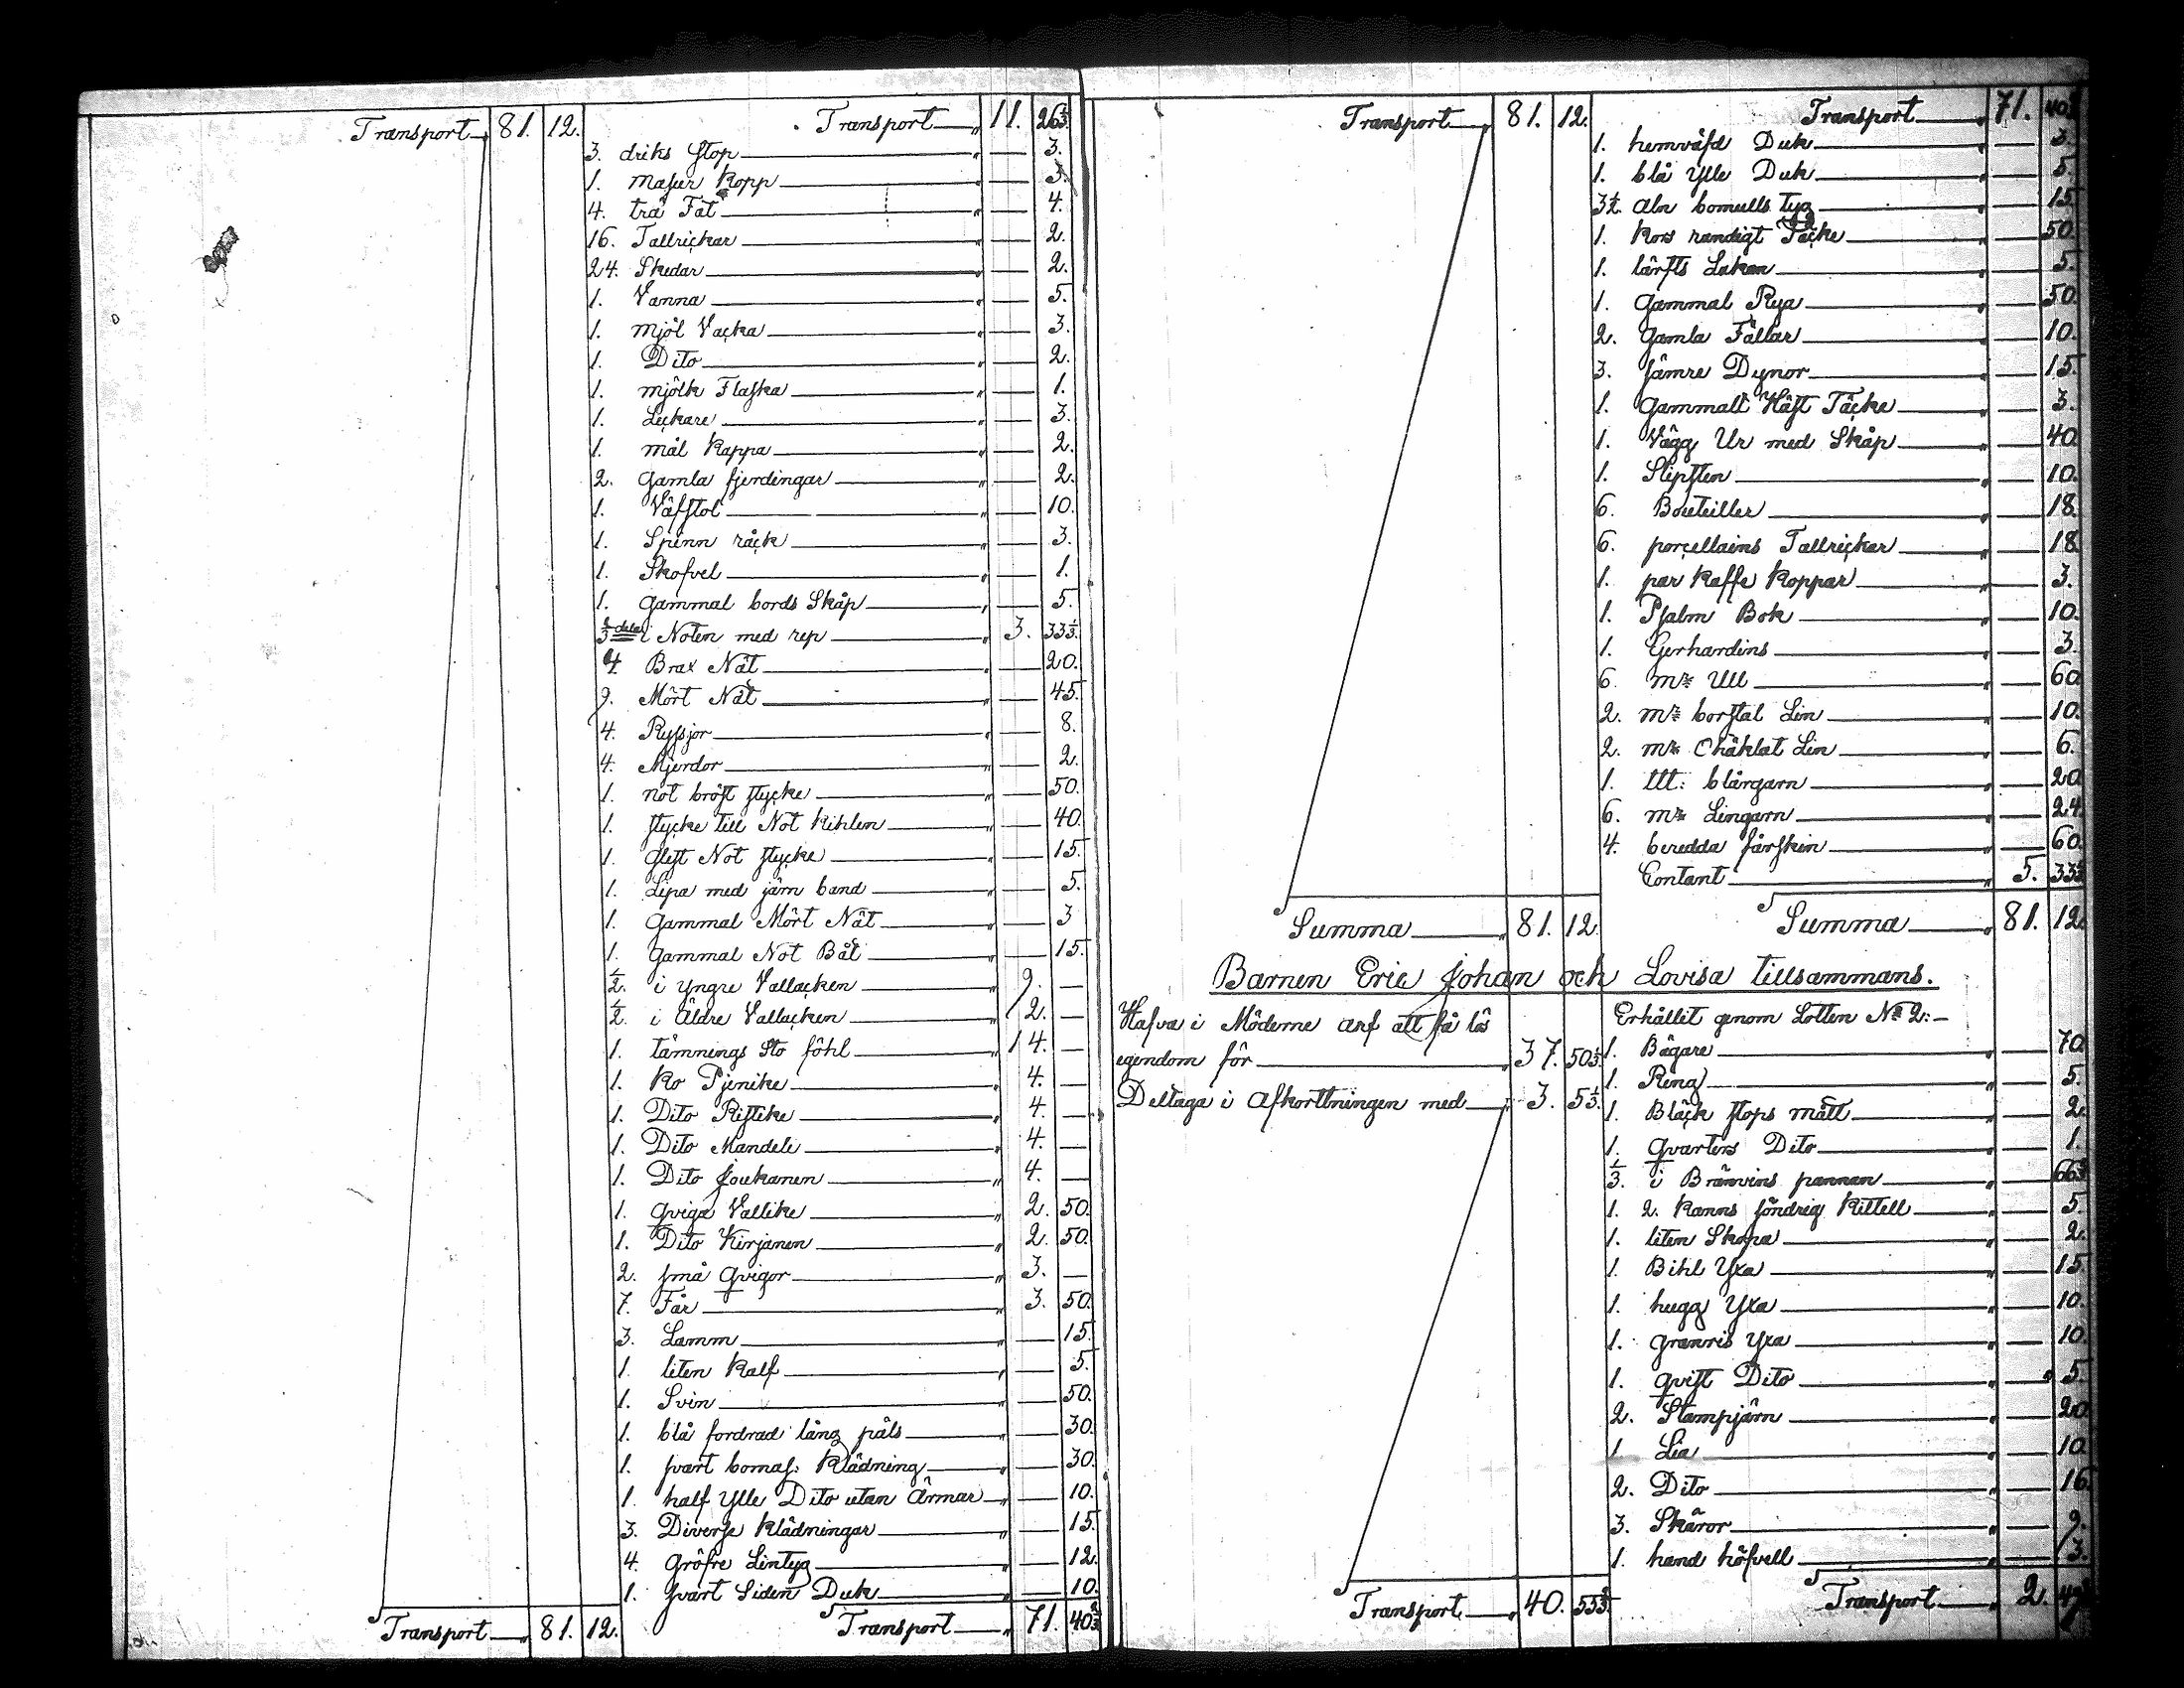 Transport 81. 12.
Transport 11. 26⅓.
3. driks Stop 3.
1. masur Kopp 3.
4. trä Fat 4.
16. Tallrickar 2.
24. Skedar 2.
1. Vanna 5.
1. mjöl Vacka 3.
1. Dito 2.
1. mjölk Flaska 1.
1. Leckare 3.
1. mål Kappa 2.
2. gamla fjerdingar 2.
1. Väfstol 10.
1. Spinn råck 3.
1. Skofvel 1.
1. gammal bords Skåp 5.
⅓ delar i Noten med rep 3. 33⅓.
4. Brax Nät 20.
9. Mört Nät 45.
4. Ryssjor 8.
4. Mjerdor 2.
1. not bröst stycke 50.
1. stycke till Not Kihlen 40.
1. glest Not stycke 15.
1. Lipa med järn band 5.
1. gammal Mört Nät 3
1. gammal Not Båt 15.
½. i yngre Vallacken 9. —
½. i Äldre Vallacken 2. —
1. tämnings Sto föhl 14. —
1. Ko Pjenike 4. —
1. Dito Ristike 4. —
1. Dito Mandeli 4. —
1. Dito Joukanen 4. —
1. qviga Vallike 2. 50.
1. Dito Kirjanen 2. 50.
2. små qvigor 3. —
7. Får 3. 50.
3. Lamm 15.
1. liten Kalf 5.
1. Svin 50.
1. blå fordrad lång päls 30.
1. svart bomas: Klädning 30.
1. half Ylle Dito utan Ärmar 10.
3. Diverse Klädningar 15.
4. gröfre Lintyg 12.
1. svart Siden Duk 10.
Transport 81. 12.
Transport 71. 40⅔.
Transport 81. 12.
Transport 71. 40⅔
1. hemväfd Duk 3.
1. blå Ylle Duk 5.
3½. aln bomulls tyg 15
1. Kors randigt Täcke 50.
1. lärfts Lakan 5.
1. gammal Rya 50.
2. gamla Fällar 10.
3. sämre Dynor 15.
1. gammalt Häst Täcke 3.
1. Vägg Ur med Skåp 40.
1. Slipsten 10.
6. Bouteiller 18.
6. porcellains Tallrickar 18.
1. par Kaffe Koppar 3.
1. Psalm Bok 10.
1. Gerhardins 3.
6. mr Ull 60
2. mr borstat Lin 10.
2. mr Ohäklat Lin 6.
1. ltt: blårgarn 20
6. mr Lingarn 24.
4. beredda fårskin 60.
Contant 5. 33⅓
Summa 81. 12.
Summa 81. 12.
Barnen Eric Johan och Lovisa tillsammans.
Hafva i Möderne arf att få lös
egendom för 37. 50⅓.
Deltaga i Afkorttningen med 3. 5⅓.
Erhållet genom Lotten No 2:
1. Bägare 70.
1. Ring 5.
1. Bläck stops mått 2.
1. qvarters Dito 1.
⅓. i Bränvins pannan 66⅔
1. 2. Kanns söndrig Kittell 5.
1. liten Skopa 2.
1. Bihl Yxa 15.
1. hugg Yxa 10.
1. granris Yxa 10.
1. qvist Dito 5.
2. Stampjärn 20.
1. Lia 10.
2. Dito 16.
3. Skäror 9.
1. hand höfvell 3.
Transport 40. 55⅔.
Transport 2.